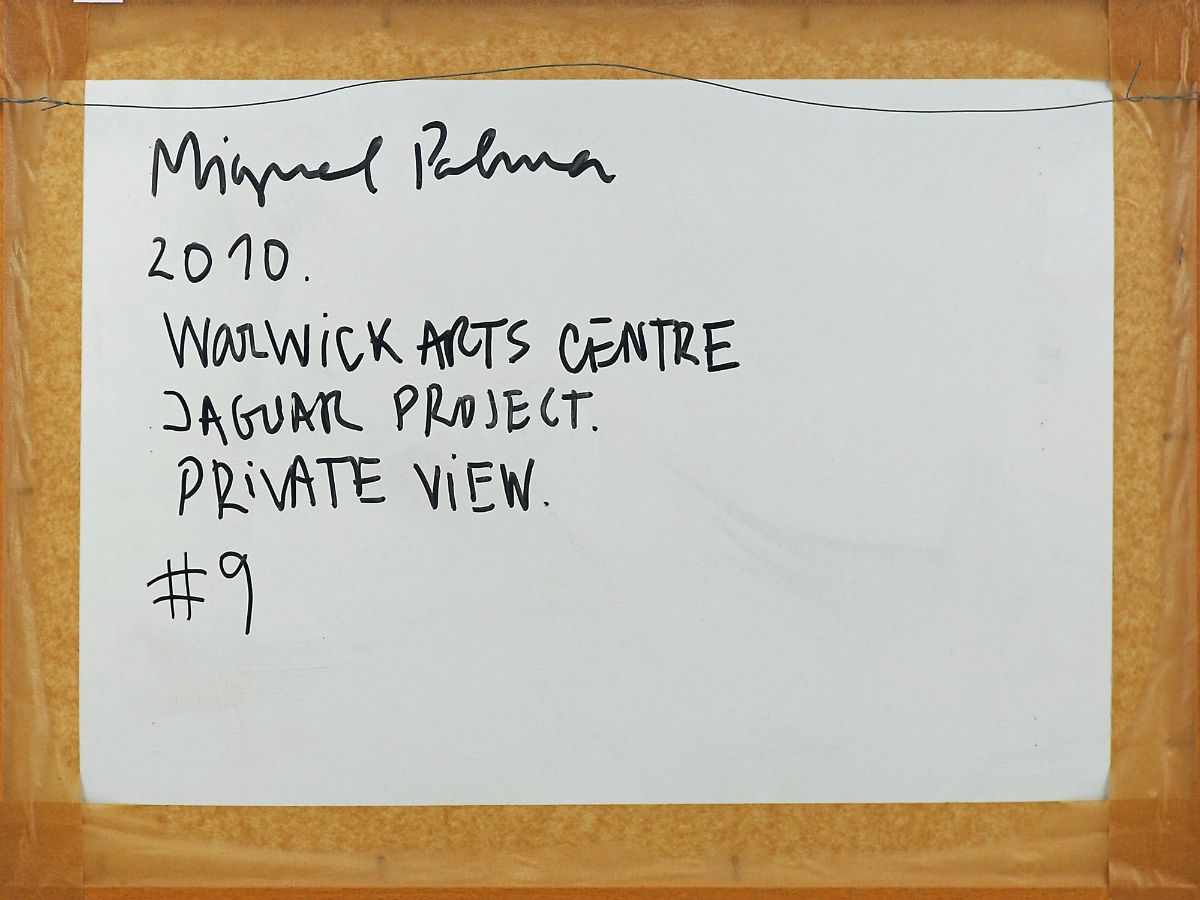 Miguel Palma
2010.
WARWiCK ARTS CENTRE
JAGUAR PROJECT.
PRiVATE ViEW.
#9